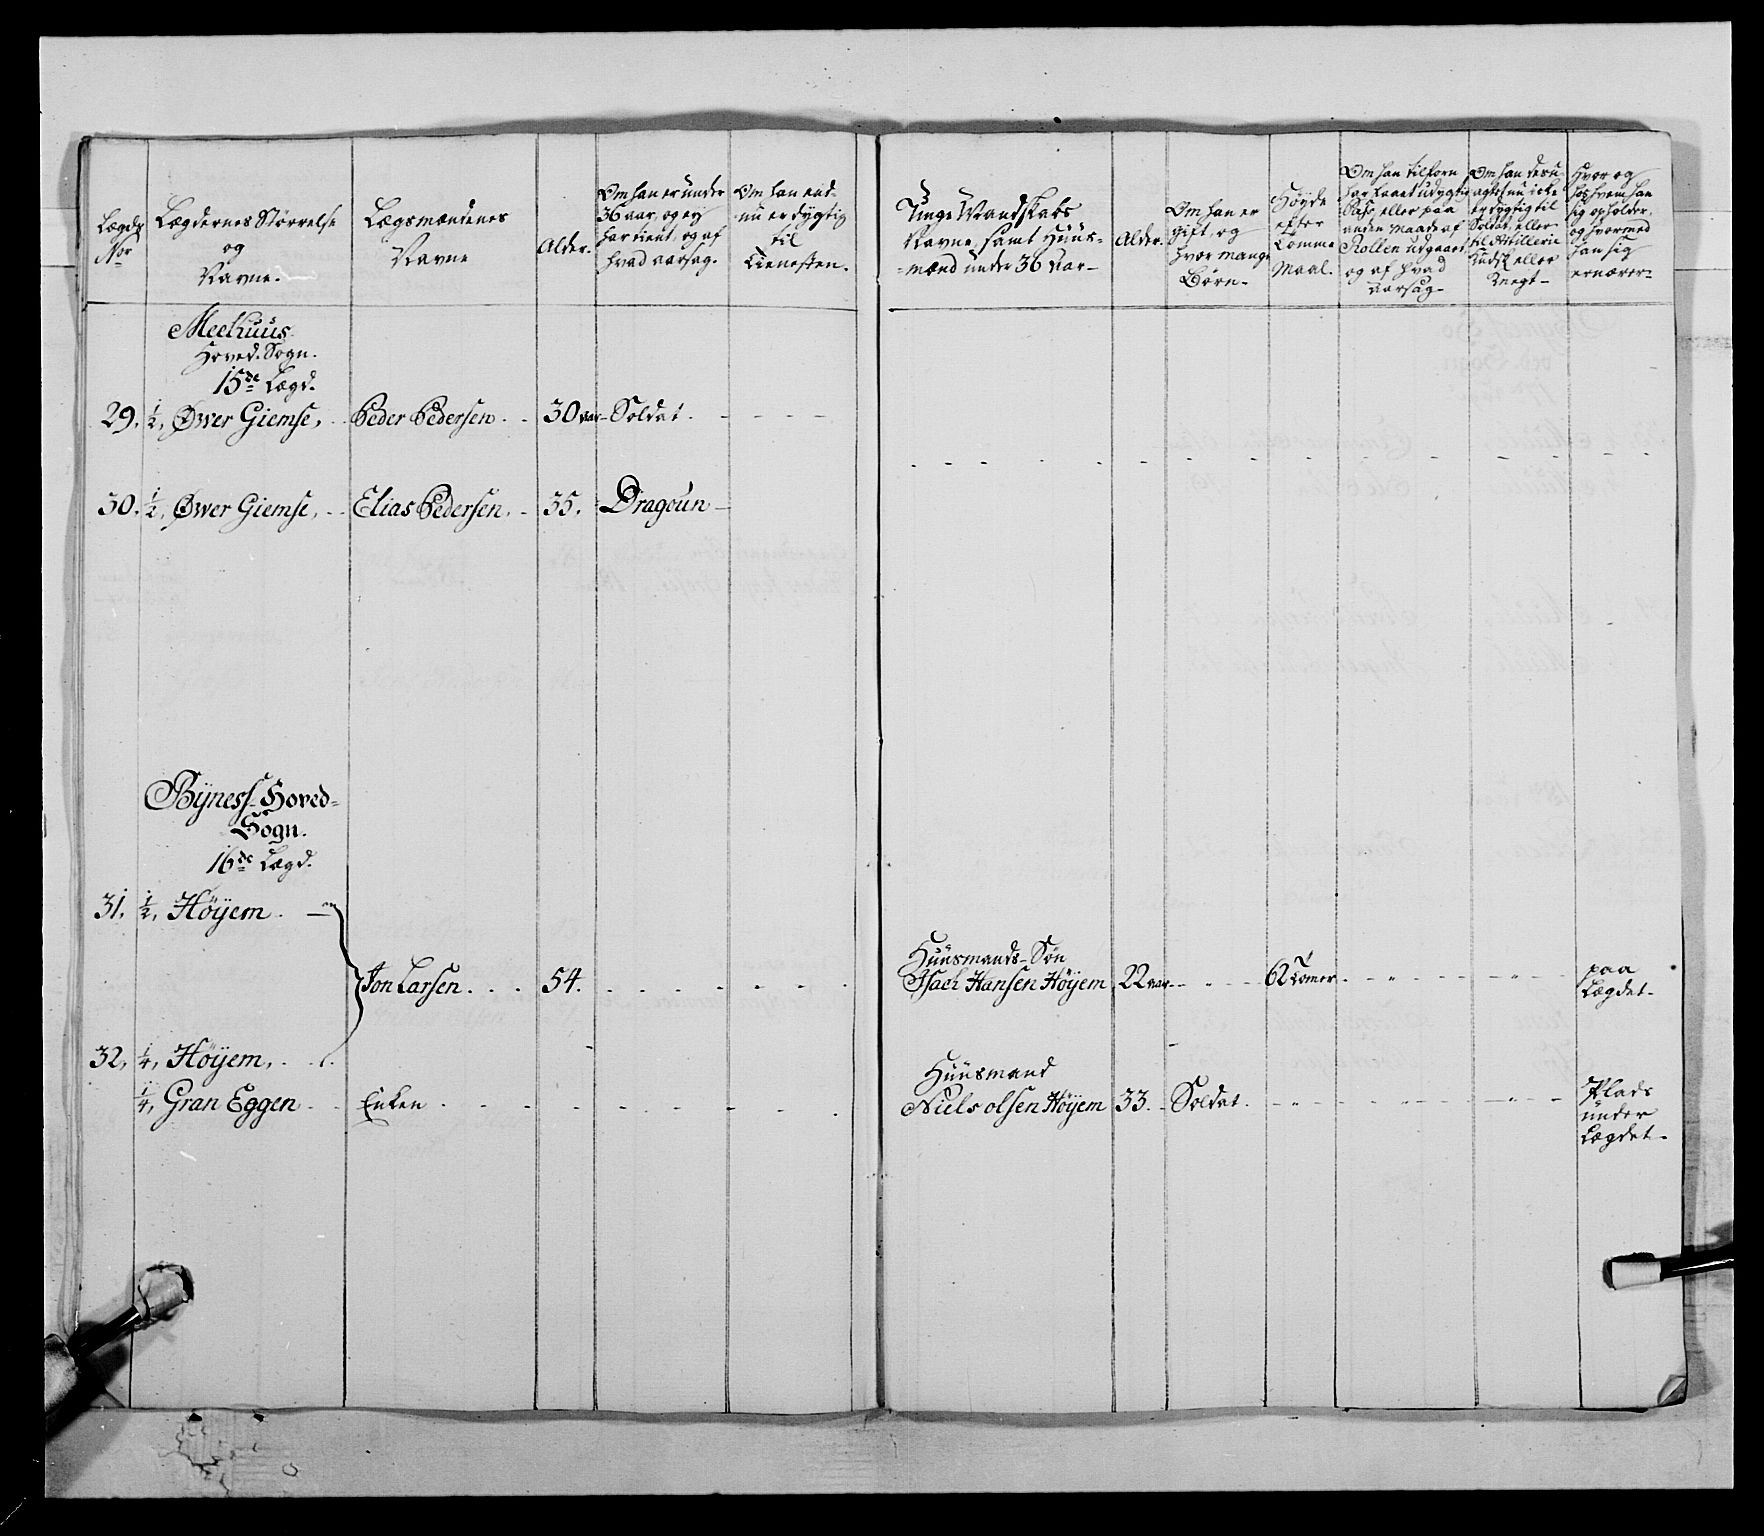 Lægds
No.
Lægdernes Størrelse
og
Navne.
Lægsmændenes
Navne
Alder.
Om han er under
36 aar, og ey
har tient, og af
hvad aarsag.
Om han end-
nu er dygtig
til
Tienesten.
Unge Mandskabs
Navne, samt Huus-
mænd under 36 aar
Alder.
Om han er
gift, og
hvor mange
Børn
Høyde
efter
Tomme
Maal.
Om han tilforn
har været udygtig
Pass, eller paa
anden Maade af
Rollen udgaaet
og af hvad
aarsag
Om han desu-
agtet nu icke
er dygtig til
Soldat, eller
til Artillerie
Kudsk eller
Knegt
Hvor og
hos hvem han
sig opholder,
og hvormed
han sig
ernærer
Meehuus
Hoved-Sogn.
15de Lægd.
29. ½, Øwer Giemse, Peder Pedersen 30 aar Soldat.
30. ½, Øwer Giemse, Elias Pedersen, 35. Dragoun
Bÿness Hoved-
Sogn.
16de Lægd.
31. ½, Höÿem.
Huusmands-Søn
Jon Larsen. 54. Isach Hansen Höÿem 22 aar 62 Tomer paa
Lægdet
32, ¼, Höÿem,
Huusmand
¼, Gran Eggen Enken Niels olsen Höÿem 33. Soldat. Plads
under
Lægdet